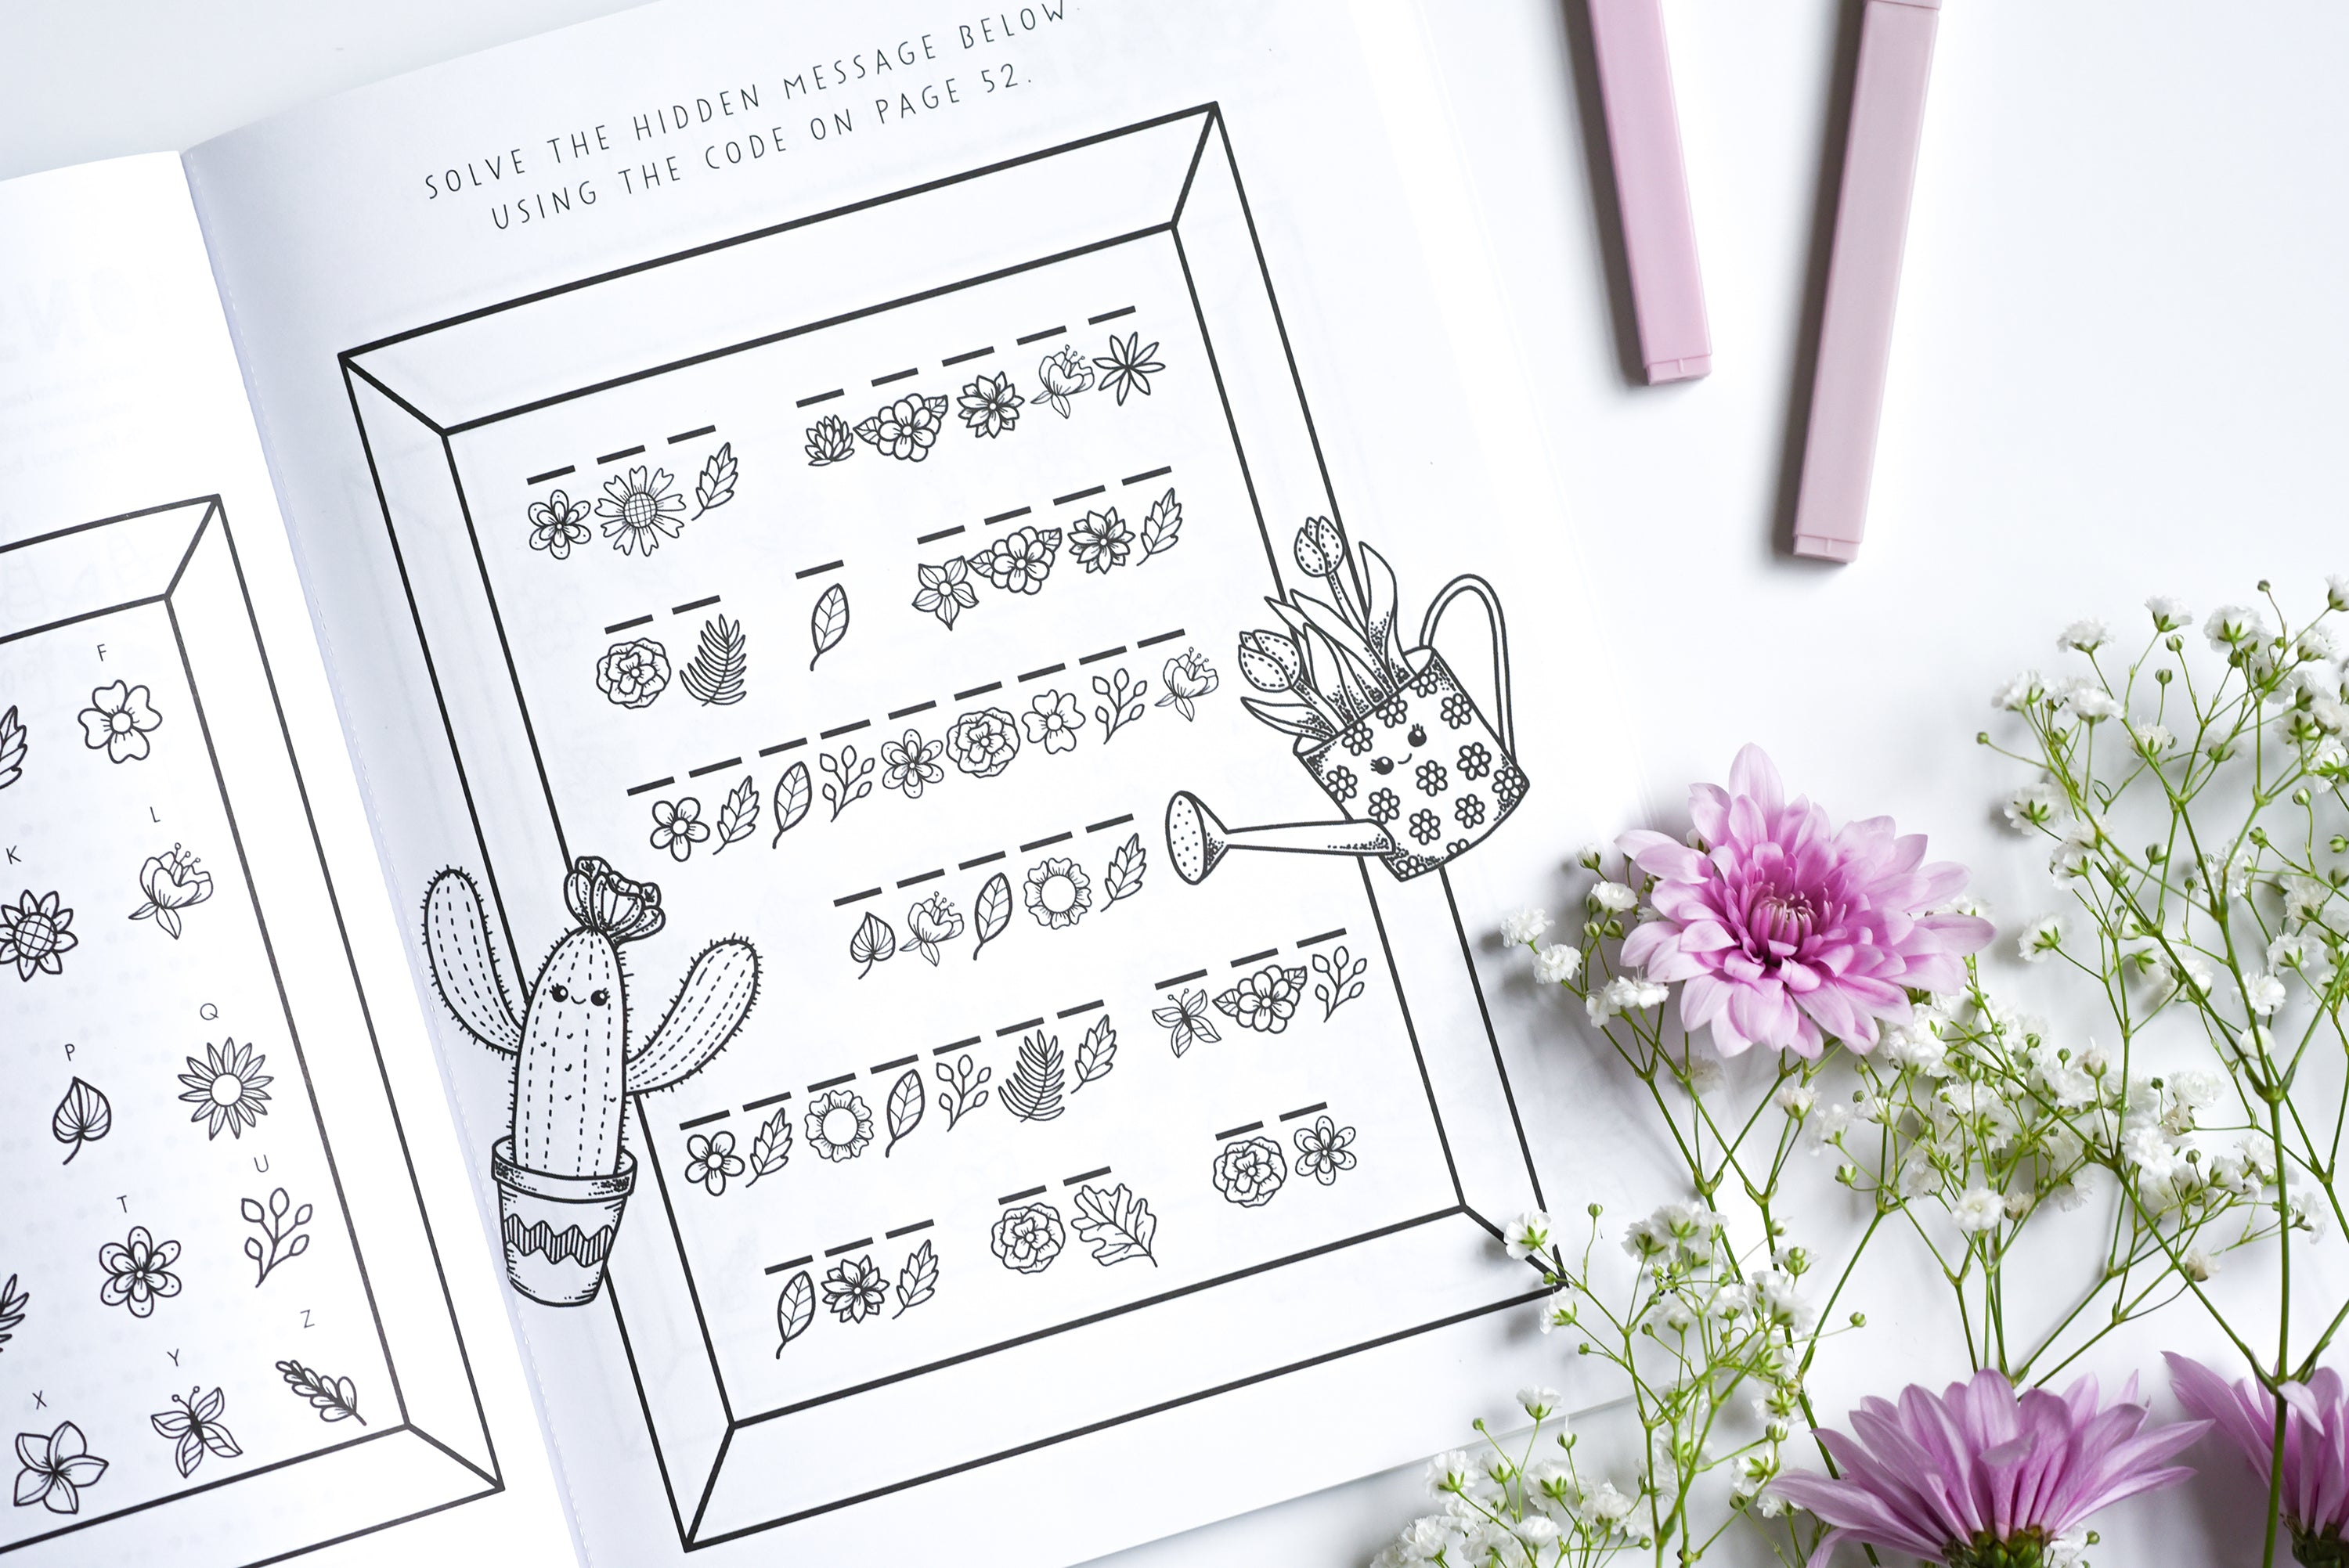 SOLVE THE HIDDEN MESSAGE BELOW
USING THE CODE ON PAGE 52.
F
K
L
P
Q
T
U
X
Y
Z